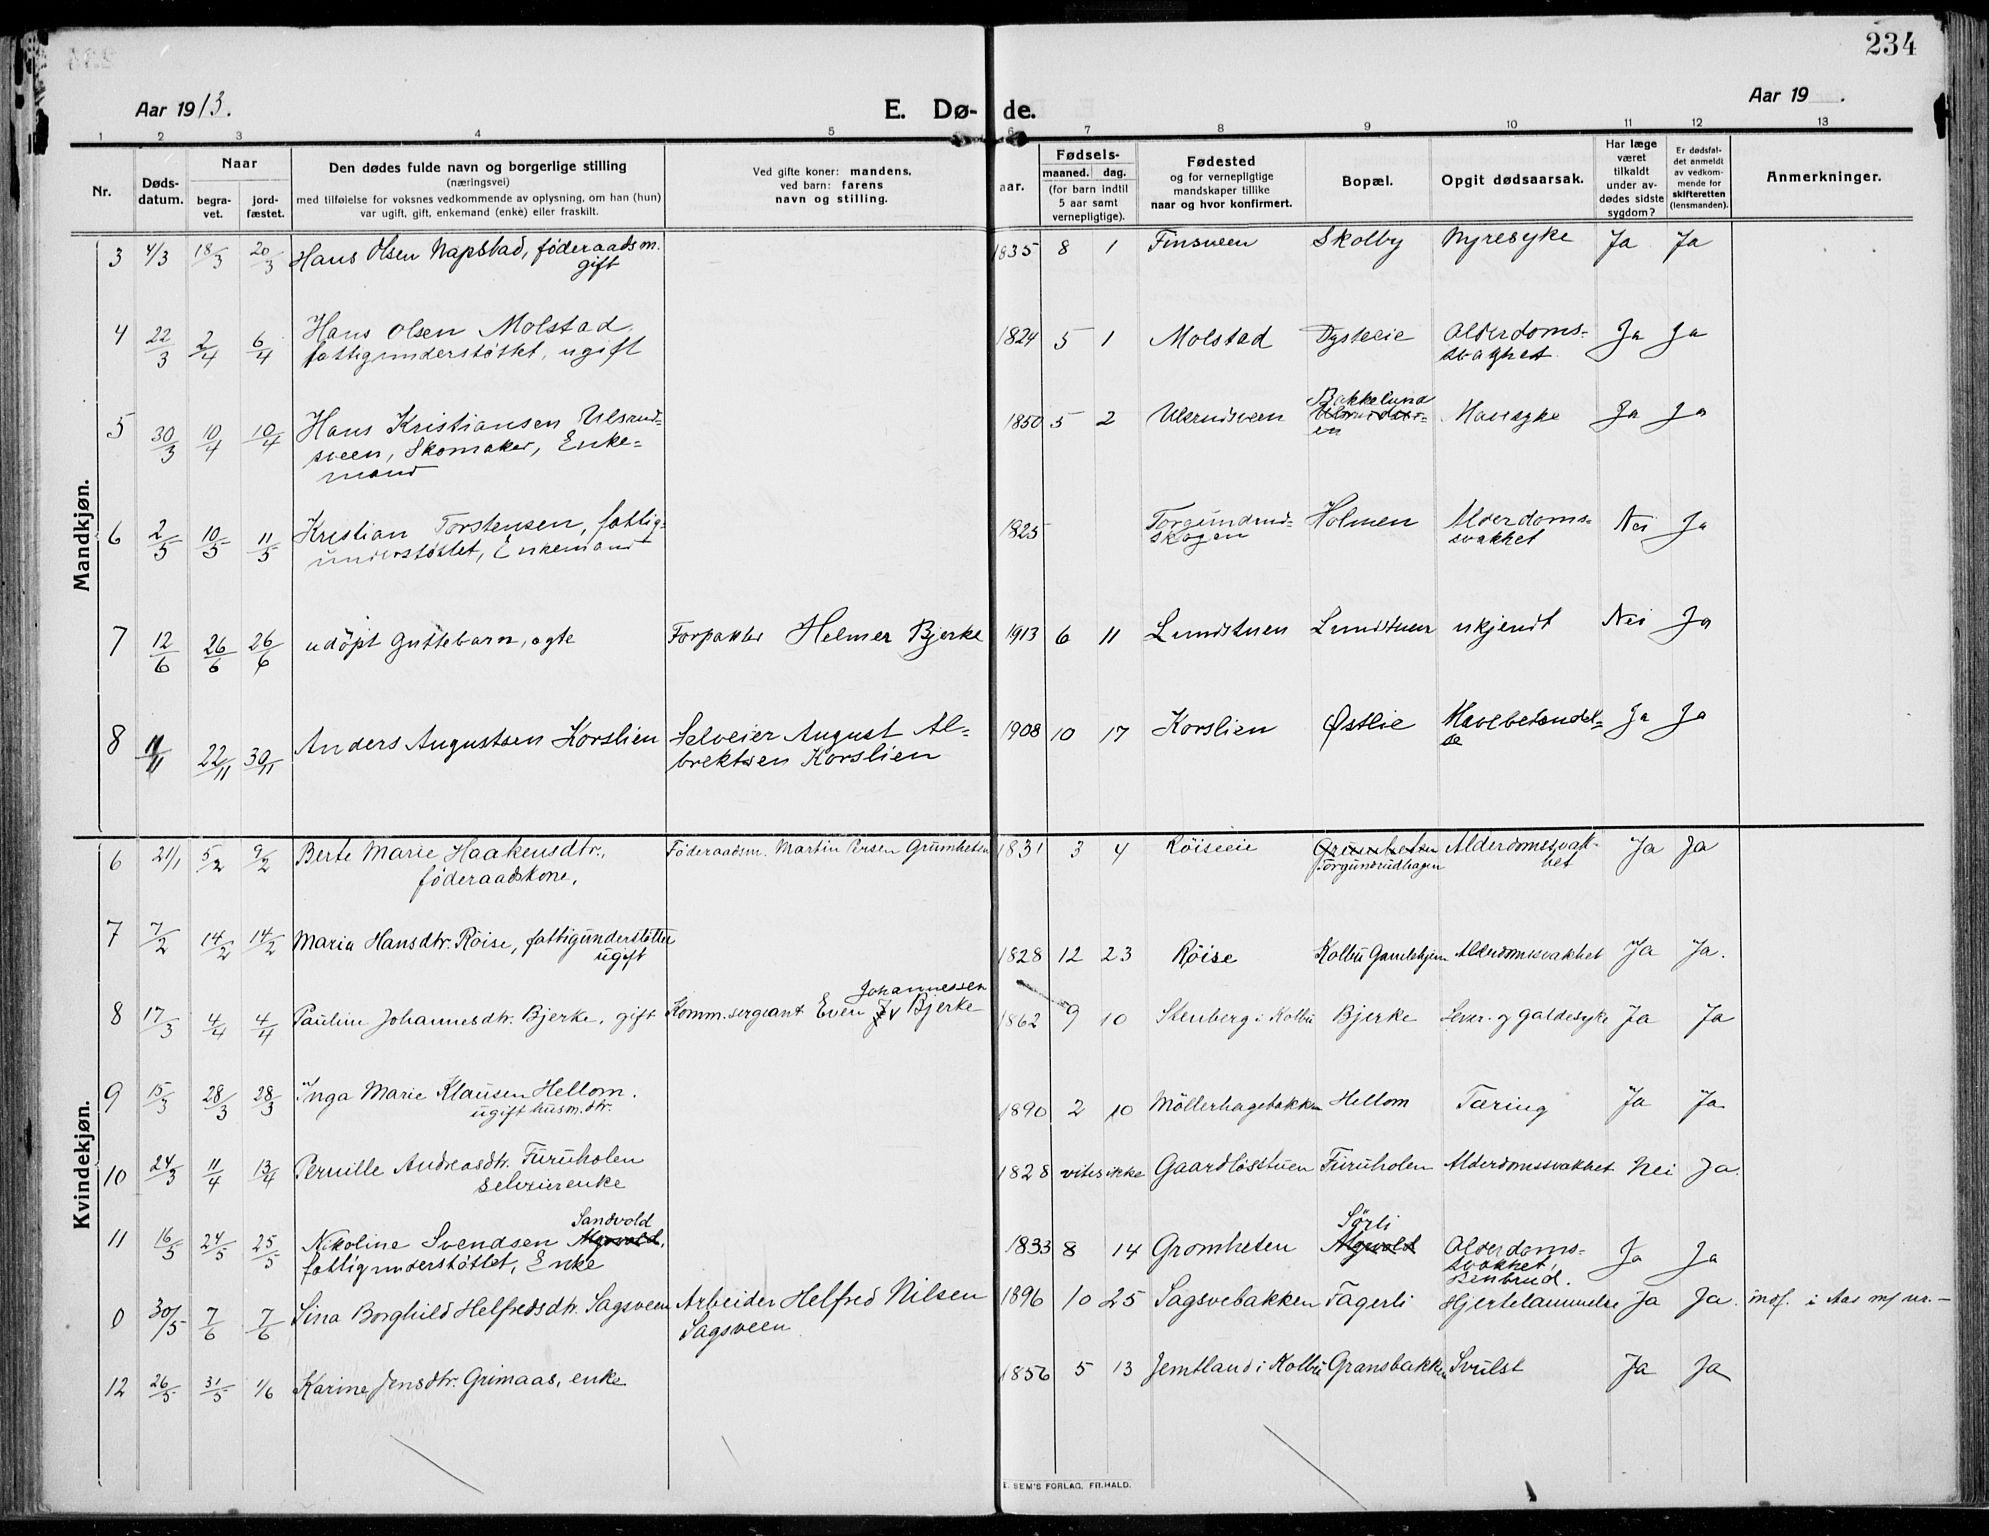 234
Aar 1913.
E. Dø-
de.
Aar 19 .
1 2 3 4 5 6 7 8 9 10 11 12 13
Nr.
Døds-
datum.
Naar
begra-
vet.
jord-
fæstet.
Den dødes fulde navn og borgerlige stilling
(næringsvei)
med tilføielse for voksnes vedkommende av oplysning, om han (hun)
var ugift, gift, enkemand (enke) eller fraskilt.
Ved gifte koner: mandens,
ved barn: farens
navn og stilling.
Fødsels-
aar.
maaned. dag.
(for barn indtil
5 aar samt
vernepligtige).
Fødested
og for vernepligtige
mandskaper tillike
naar og hvor konfirmert.
Bopæl.
Opgit dødsaarsak.
Har læge
været
tilkaldt
under av-
dødes sidste
sygdom?
Er dødsfal-
det anmeldt
av vedkom-
mende for
skifteretten
(lensmanden).
Anmerkninger.
Mandkjøn.
3 4/3 18/3 20/3 Hans Olsen Napstad, føderaadsm. 1835 8 1 Finsveen Skolby Nyresyke Ja Ja
gift
4 22/3 2/4 6/4 Hans Olsen Molstad, 1824 5 1 Molstad Dysteeie Alderdoms- Ja Ja
fattigunderstøttet, ugift svaghet.
5 30/3 10/4 10/4 Hans Kristiansen Ulsrud- 1850 5 2 Ulsrudsveen Bakkelund Mavesyke Ja Ja
sveen, Skomaker, Enke-
mand
6 2/5 10/5 11/5 Kristian Torstensen, fattig- 1825 Torgundrud- Holmen Alderdoms- Nei Ja
understøttet, Enkemand skogen svakhet
7 12/6 26/6 26/6 udøpt Guttebarn, egte Forpakter Helmer Bjerke 1913 6 11 Lundstuen Lundstuen ukjendt Nei Ja
8 11/11 22/11 30/11 Anders Augustsen Korslien Selveier August Al- 1908 10 17 Korslien Østlie Mavebetændel- Ja Ja
brektsen Korslien se
Kvindekjøn.
6 21/1 5/2 9/2 Berte Marie Haakensdtr., Føderaadsm. Martin Persen Grumheten 1831 3 4 Røiseeie Grumheten Alderdomssvak- Ja Ja
føderaadskone, Torgunsrudhagen het
7 7/2 14/2 14/2 Maria Hansdtr. Røise, fattigunderstøttet 1828 12 23 Røise Kolbu Gamlehjem Alderdomssvakhet Ja Ja.
ugift
Johannessen
8 17/3 4/4 4/4 Pauline Johannesdtr. Bjerke, gift Komm.sergeant Even J. Bjerke 1862 9 10 Stenberg i Kolbu Bjerke Lever- og galdesyke Ja Ja
9 15/3 28/3 28/3 Inga Marie Klausen Hellom. 1890 2 10 Möllerhagebakken Hellom Tæring Ja Ja
ugift husm.dtr.
10 24/3 11/4 13/4 Pernille Andreasdtr. Furuholen 1828 vites ikke Gaardløsstuen Furuholen Alderdomssvakhet Nei Ja.
Selveierenke
Sandvold Sørli
11 16/5 24/5 25/5 Nikoline Svendsen 1833 8 14 Gromheten Alderdoms- Ja Ja
fattigunderstøttet, Enke svakhet,
Benbrud.
0 30/5 7/6 7/6 Sina Borghild Helfredsdtr. Sagsveen Arbeider Helfred Nilsen 1896 10 25 Sagsvebakken Fagerli Hjertelammelse Ja Ja. indf. i Aas m/ nr. —
Sagsveen
12 26/5 31/5 1/6 Karine Jensdtr. Grimaas, enke 1856 5 13 Jemtland i Kolbu Gransbakken Svulst Ja Ja
E. SEM'S FORLAG, FR.HALD.